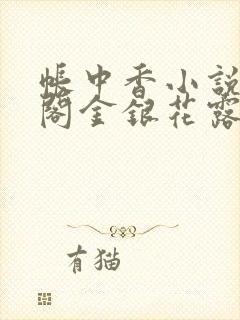 帳中香小說
閣金銀花露
有猫